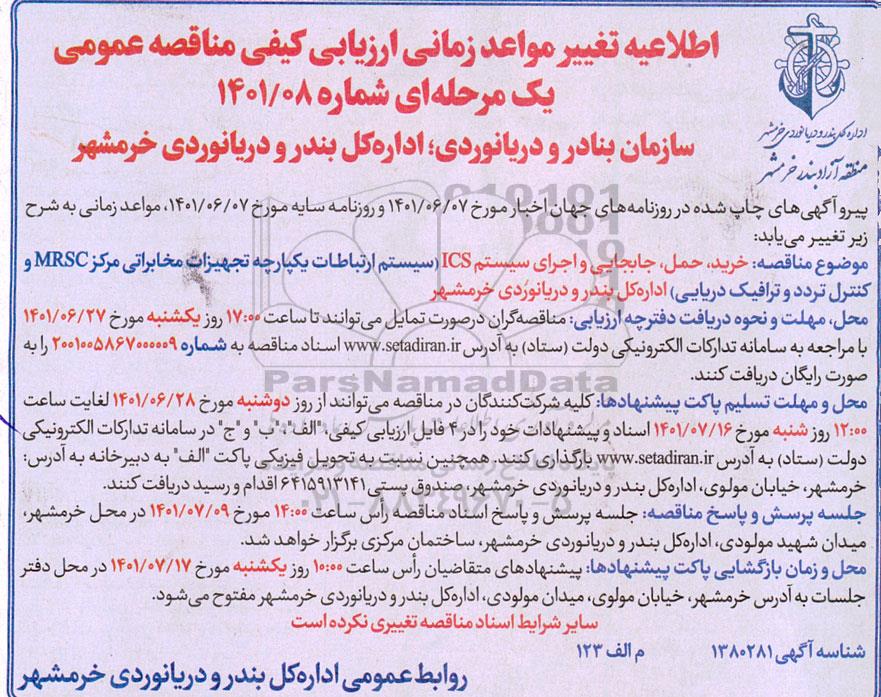 اداره کل بندر و دریانوردی خرمشهر
منطقه آزاد بندر خرمشهر
اطلاعیه تغییر مواعد زمانی ارزیابی کیفی مناقصه عمومی
یک مرحله‌ای شماره ۱۴۰۱/۰۸
سازمان بنادر و دریانوردی؛ اداره‌کل بندر و دریانوردی خرمشهر
پیرو آگهی‌های چاپ شده در روزنامه‌های جهان اخبار مورخ ۱۴۰۱/۰۶/۰۷ و روزنامه سایه مورخ ۱۴۰۱/۰۶/۰۷، مواعد زمانی به شرح
زیر تغییر می‌یابد:
موضوع مناقصه: خرید، حمل، جابجایی و اجرای سیستم ICS (سیستم ارتباطات یکپارچه تجهیزات مخابراتی مرکز MRSC و
کنترل تردد و ترافیک دریایی) اداره‌کل بندر و دریانوردی خرمشهر
محل، مهلت و نحوه دریافت دفترچه ارزیابی: مناقصه‌گران درصورت تمایل می‌توانند تا ساعت ۱۷:۰۰ روز یکشنبه مورخ ۱۴۰۱/۰۶/۲۷
با مراجعه به سامانه تدارکات الکترونیکی دولت (ستاد) به آدرس www.setadiran.ir اسناد مناقصه به شماره ۲۰۰۱۰۰۵۸۶۷۰۰۰۰۰۹ را به
صورت رایگان دریافت کنند.
محل و مهلت تسلیم پاکت پیشنهادها: کلیه شرکت‌کنندگان در مناقصه می‌توانند از روز دوشنبه مورخ ۱۴۰۱/۰۶/۲۸ لغایت ساعت
۱۲:۰۰ روز شنبه مورخ ۱۴۰۱/۰۷/۱۶ اسناد و پیشنهادات خود را در ۴ فایل ارزیابی کیفی، "الف"، "ب" و "ج" در سامانه تدارکات الکترونیکی
دولت (ستاد) به آدرس www.setadiran.ir بارگذاری کنند. همچنین نسبت به تحویل فیزیکی پاکت "الف" به دبیرخانه به آدرس:
خرمشهر، خیابان مولوی، اداره‌کل بندر و دریانوردی خرمشهر، صندوق پستی ۶۴۱۵۹۱۳۱۴۱ اقدام و رسید دریافت کنند.
جلسه پرسش و پاسخ مناقصه: جلسه پرسش و پاسخ اسناد مناقصه راس ساعت ۱۴:۰۰ مورخ ۱۴۰۱/۰۷/۰۹ در محل خرمشهر،
میدان شهید مولودی، اداره‌کل بندر و دریانوردی خرمشهر، ساختمان مرکزی برگزار خواهد شد.
محل و زمان بازگشایی پاکت پیشنهادها: پیشنهادهای متقاضیان رأس ساعت ۱۰:۰۰ روز یکشنبه مورخ ۱۴۰۱/۰۷/۱۷ در محل دفتر
جلسات به آدرس خرمشهر، خیابان مولوی، میدان مولودی، اداره‌کل بندر و دریانوردی خرمشهر مفتوح می‌شود.
سایر شرایط اسناد مناقصه تغییری نکرده است
شناسه آگهی ۱۳۸۰۲۸۱ م الف ۱۲۳
روابط عمومی اداره‌کل بندر و دریانوردی خرمشهر
ParsNamadData
۰۲۱-۸۸۳۴۹۶۷۰-۵